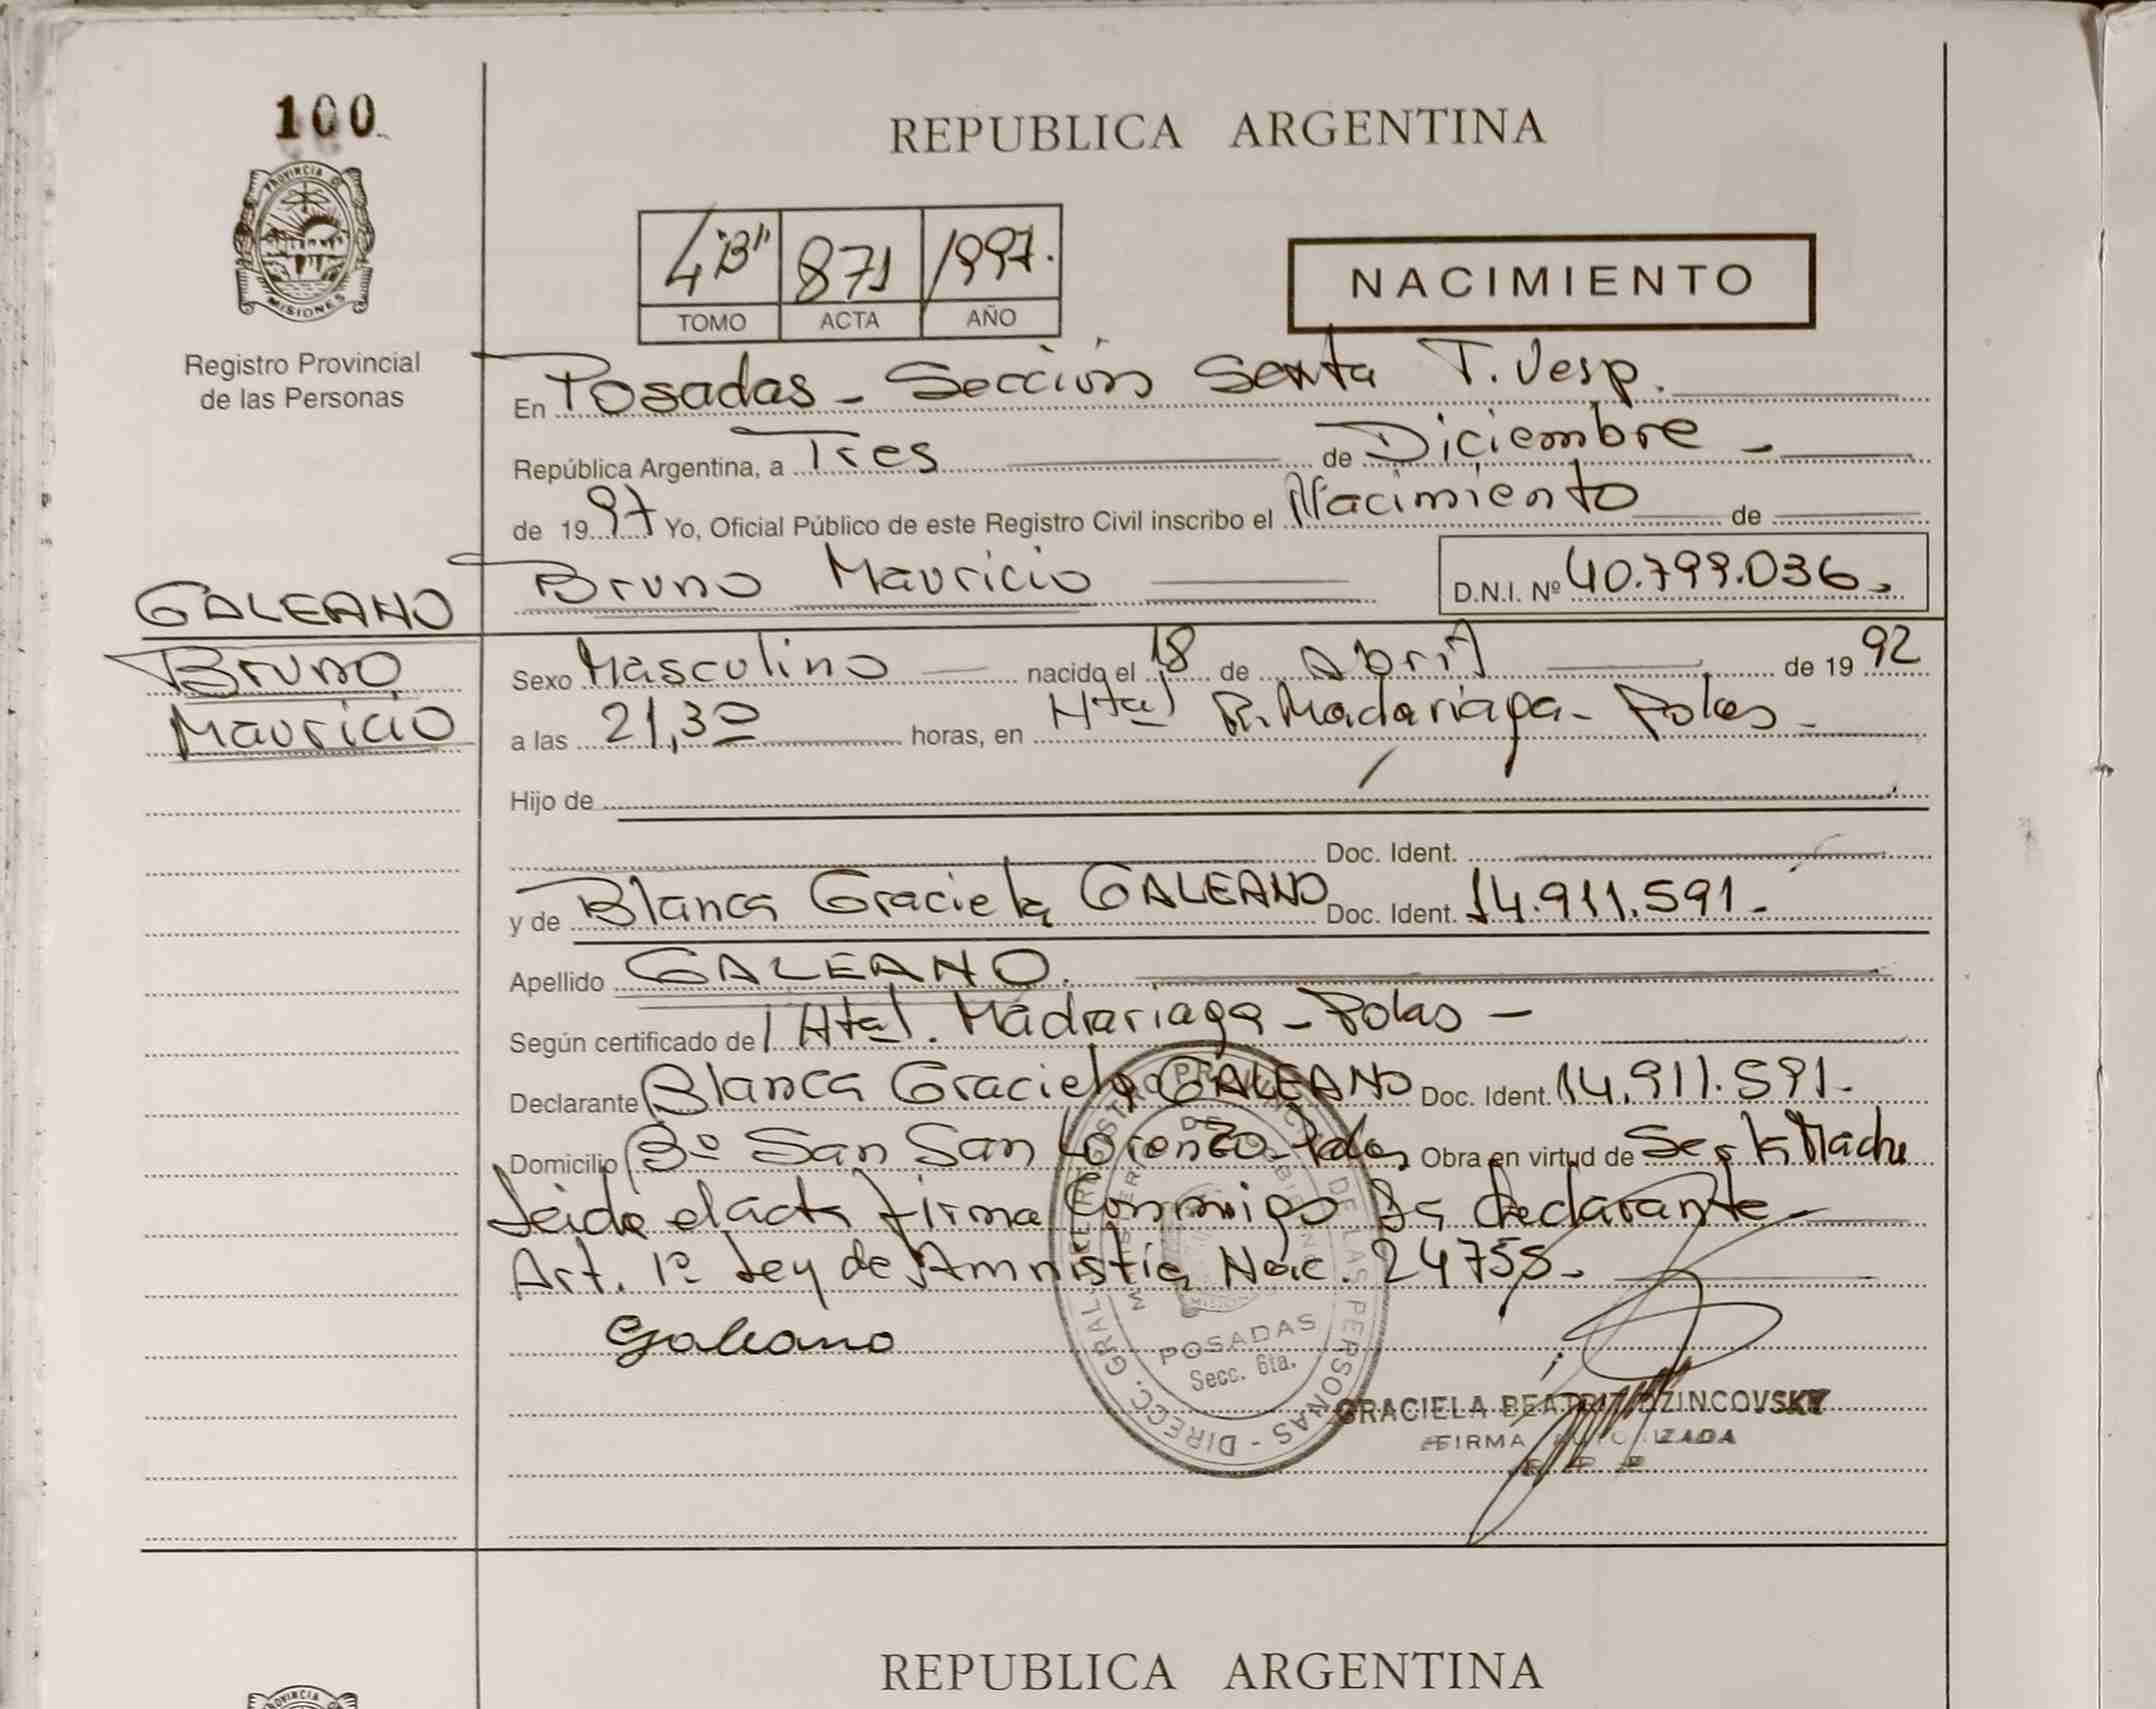 100
PROVINCIA DE
MISIONES
Registro Provincial
de las Personas
REPUBLICA ARGENTINA
4"B" 871 1997.
TOMO ACTA AÑO
NACIMIENTO
En Posadas - Sección Sexta T. Vesp.
República Argentina, a Tres de Diciembre -
de 1997 Yo, Oficial Público de este Registro Civil inscribo el Nacimiento de
Bruno Mauricio D.N.I. Nº 40.799.036
GALEANO
Bruno
Mauricio
Sexo Masculino nacido el 18 de Abril de 1992
a las 21,30 horas, en Htal R. Madariaga - Pdas -
Hijo de
Doc. Ident.
y de Blanca Graciela GALEANO Doc. Ident. 14.911.591 -
Apellido GALEANO.
Según certificado del Htal. Madariaga - Pdas -
Declarante Blanca Graciela GALEANO Doc. Ident. 14.911.591 -
Domicilio Bº San San Lorenzo - Pdas Obra en virtud de Ser la Madre
Leida el acta firma Conmigo la declarante -
Art. 1º Ley de Amnistia Nac. 24755 -
Galeano
DIRECC. GRAL. REGISTRO PROVINCIAL DE LAS PERSONAS
POSADAS
Secc. 6ta.
GRACIELA BEATRIZ DZINCOVSKY
FIRMA AUTORIZADA
REPUBLICA ARGENTINA
PROVINCIA